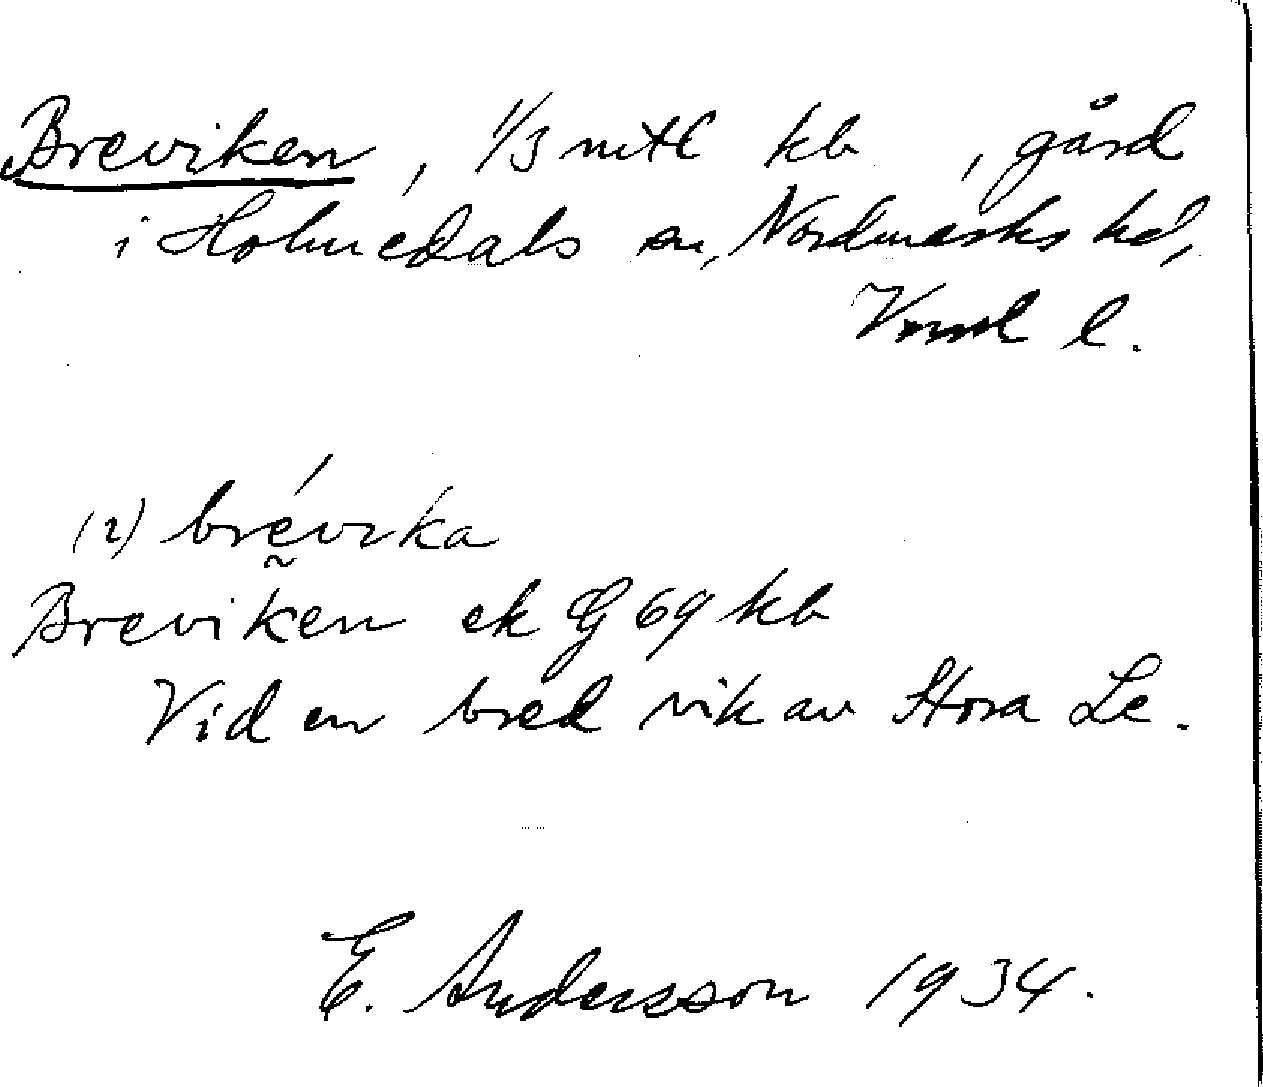 Breviken, 1/3 mtl kb , gård
i Holmedals sn, Nordmarks hd,
Vrml l.
(2) brévıka
Breviken ek G 69 kb
Vid en bred vik av Stora Le.
E. Andersson 1934.